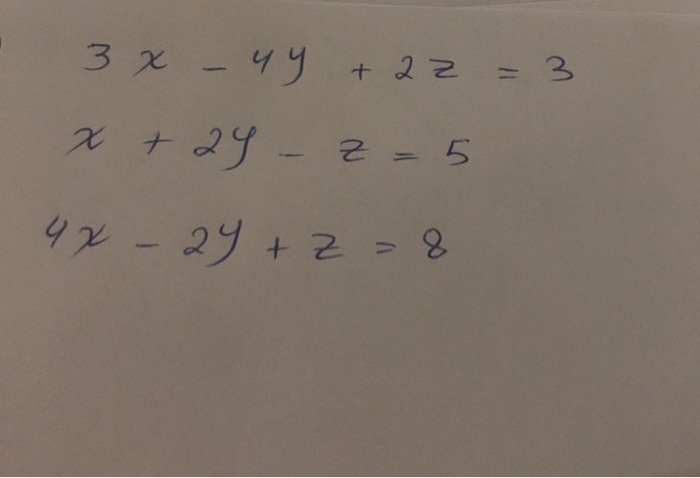 3x - 4y + 2z = 3
x + 2y - z = 5
4x - 2y + z = 8